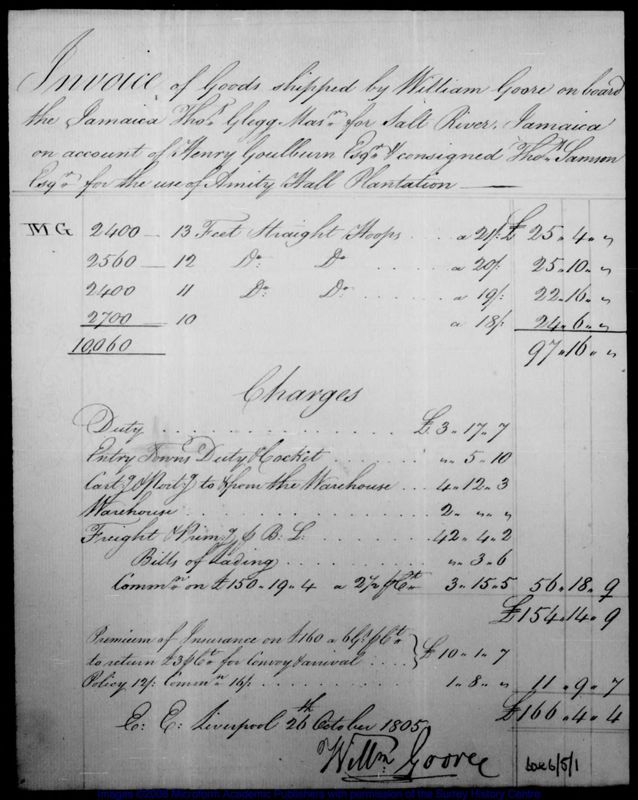 Invoice of Goods shipped by William Goore on board
the Jamaica Thos. Glegg Masr. for Salt River, Jamaica
on account of Henry Goulburn Esqr. & consigned Thos. Samson
Esqr. for the use of Amity Hall Plantation —
MG 2400 — 13 Feet Straight Hoops . . a 21/. £ 25 " 4 " "
2560 — 12 Do. Do. . . . . a 20/. 25 " 10 " "
2400 11 Do. Do. . . . . a 19/. 22 " 16 " "
2700 10 a 18/. 24 " 6 " "
10,060 97 " 16 " "
Charges
Duty . . . . . . . . . . £ 3 " 17 " 7
Entry Towns Duty & Cocket . . . " " 5 " 10
Cartg. & Portg. to & from the Warehouse . . . 4 " 12 " 3
Warehouse . . . . . . . . 2 " " " "
Freight & Primg. p B. L. . . . . . 42 " 4 " 2
Bills of Lading . . . . . . " " 3 " 6
Commn. on £150 " 19 " 4 a 2½ p Ct. 3 " 15 " 5 56 " 18 " 9
£154 " 14 " 9
Premium of Insurance on £160 a 6 Gs. p Ct.
to return £3 p Ct. for Convoy & arrival . . . } £ 10 " 1 " 7
Policy 12/. Commn. 16/. . . . . . . 1 " 8 " " 11 " 9 " 7
£166 " 4 " 4
E: E: Liverpool 26th October 1805
Willm. Goore
box 6/5/1
Images ©2008 Microform Academic Publishers with permission of the Surrey History Centre